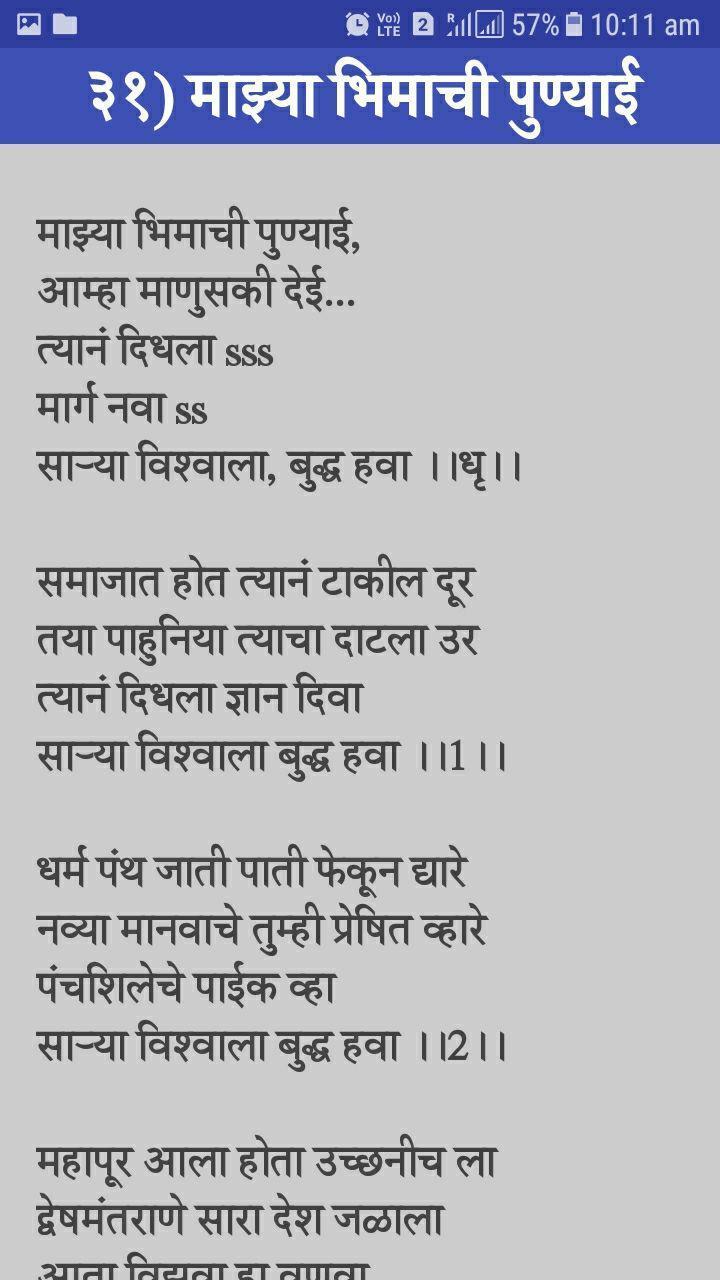 Vo)) LTE 2 R 57% 10:11 am
३१) माझ्या भिमाची पुण्याई
माझ्या भिमाची पुण्याई,
आम्हा माणुसकी देई...
त्यानं दिधला sss
मार्ग नवा ss
साऱ्या विश्वाला, बुद्ध हवा ।।धृ।।
समाजात होत त्यानं टाकील दूर
तया पाहुनिया त्याचा दाटला उर
त्यानं दिधला ज्ञान दिवा
साऱ्या विश्वाला बुद्ध हवा ।।1।।
धर्म पंथ जाती पाती फेकून द्यारे
नव्या मानवाचे तुम्ही प्रेषित व्हारे
पंचशिलेचे पाईक व्हा
साऱ्या विश्वाला बुद्ध हवा ।।2।।
महापूर आला होता उच्छनीच ला
द्वेषमंतराणे सारा देश जळाला
आता विझवा हा वणवा